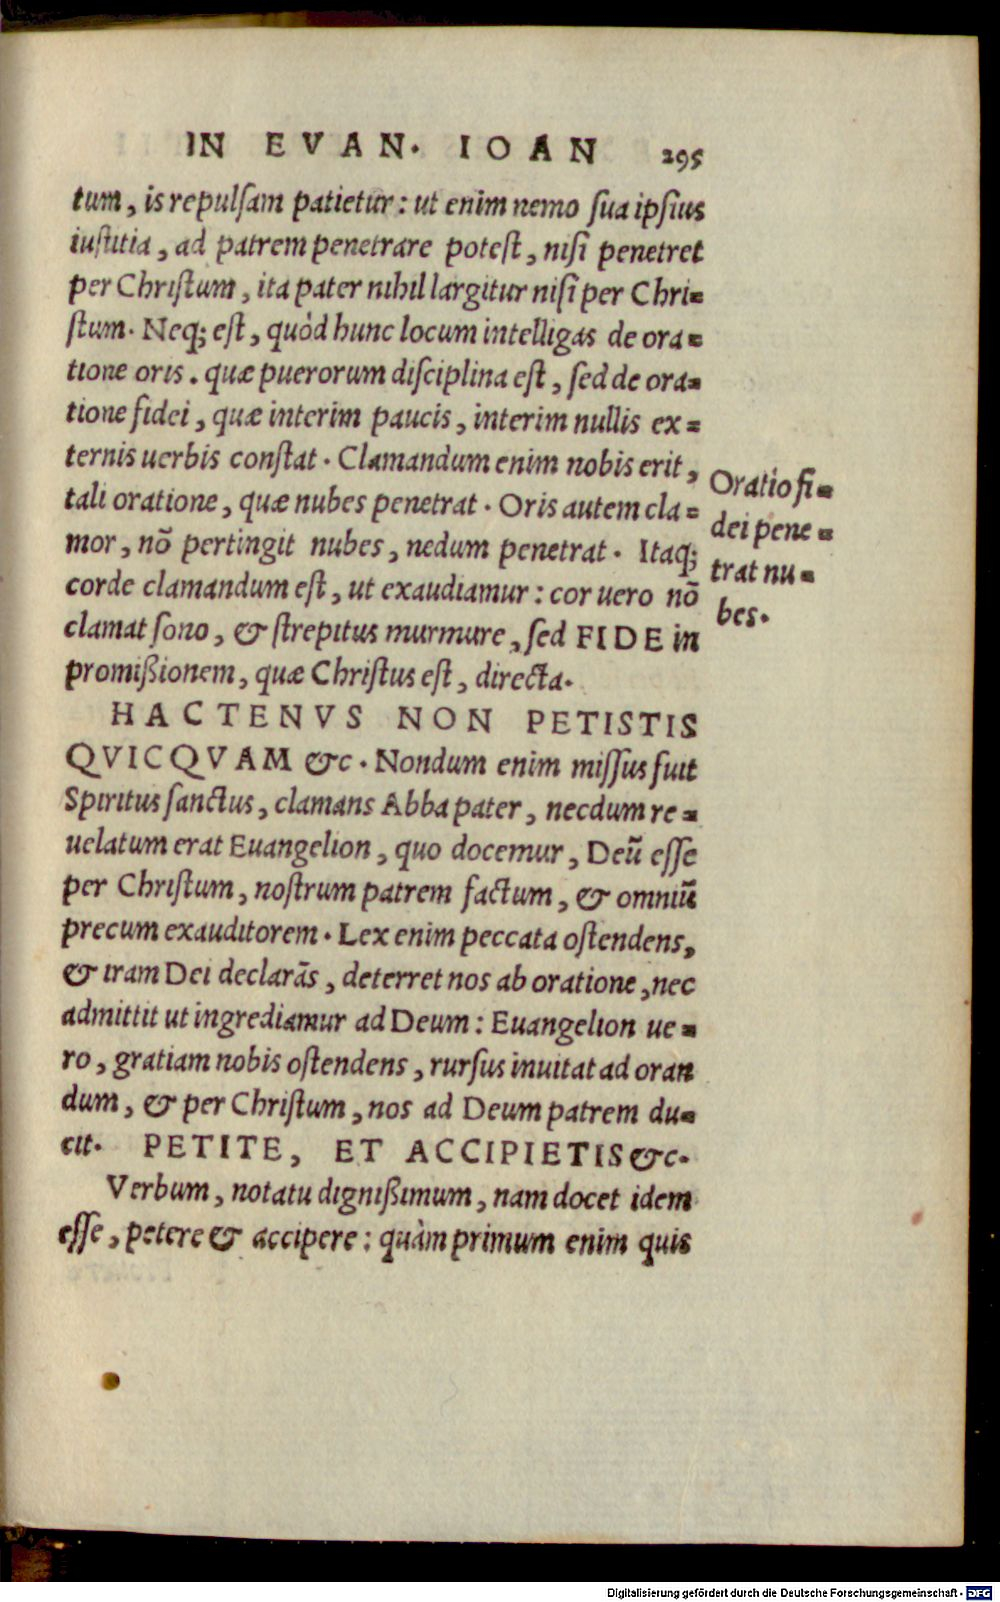 IN EVAN. IOAN 295
tum, is repulsam patietur: ut enim nemo sua ipsius
iustitia, ad patrem penetrare potest, nisi penetret
per Christum, ita pater nihil largitur nisi per Chri=
stum. Neq; est, quòd hunc locum intelligas de ora=
tione oris. quæ puerorum disciplina est, sed de ora=
tione fidei, quæ interim paucis, interim nullis ex=
ternis uerbis constat. Clamandum enim nobis erit,
tali oratione, quæ nubes penetrat. Oris autem cla=
mor, nõ pertingit nubes, nedum penetrat. Itaq;
corde clamandum est, ut exaudiamur: cor uero nõ
clamat sono, & strepitus murmure, sed FIDE in
promißionem, quæ Christus est, directa.
Oratio fi=
dei pene=
trat nu=
bes.
HACTENVS NON PETISTIS
QVICQVAM &c. Nondum enim missus fuit
Spiritus sanctus, clamans Abba pater, necdum re=
uelatum erat Euangelion, quo docemur, Deũ esse
per Christum, nostrum patrem factum, & omniũ
precum exauditorem. Lex enim peccata ostendens,
& iram Dei declarãs, deterret nos ab oratione, nec
admittit ut ingrediamur ad Deum: Euangelion ue=
ro, gratiam nobis ostendens, rursus inuitat ad oran
dum, & per Christum, nos ad Deum patrem du=
cit. PETITE, ET ACCIPIETIS &c.
Verbum, notatu dignißimum, nam docet idem
esse, petere & accipere: quàm primum enim quis
Digitalisierung gefördert durch die Deutsche Forschungsgemeinschaft - DFG